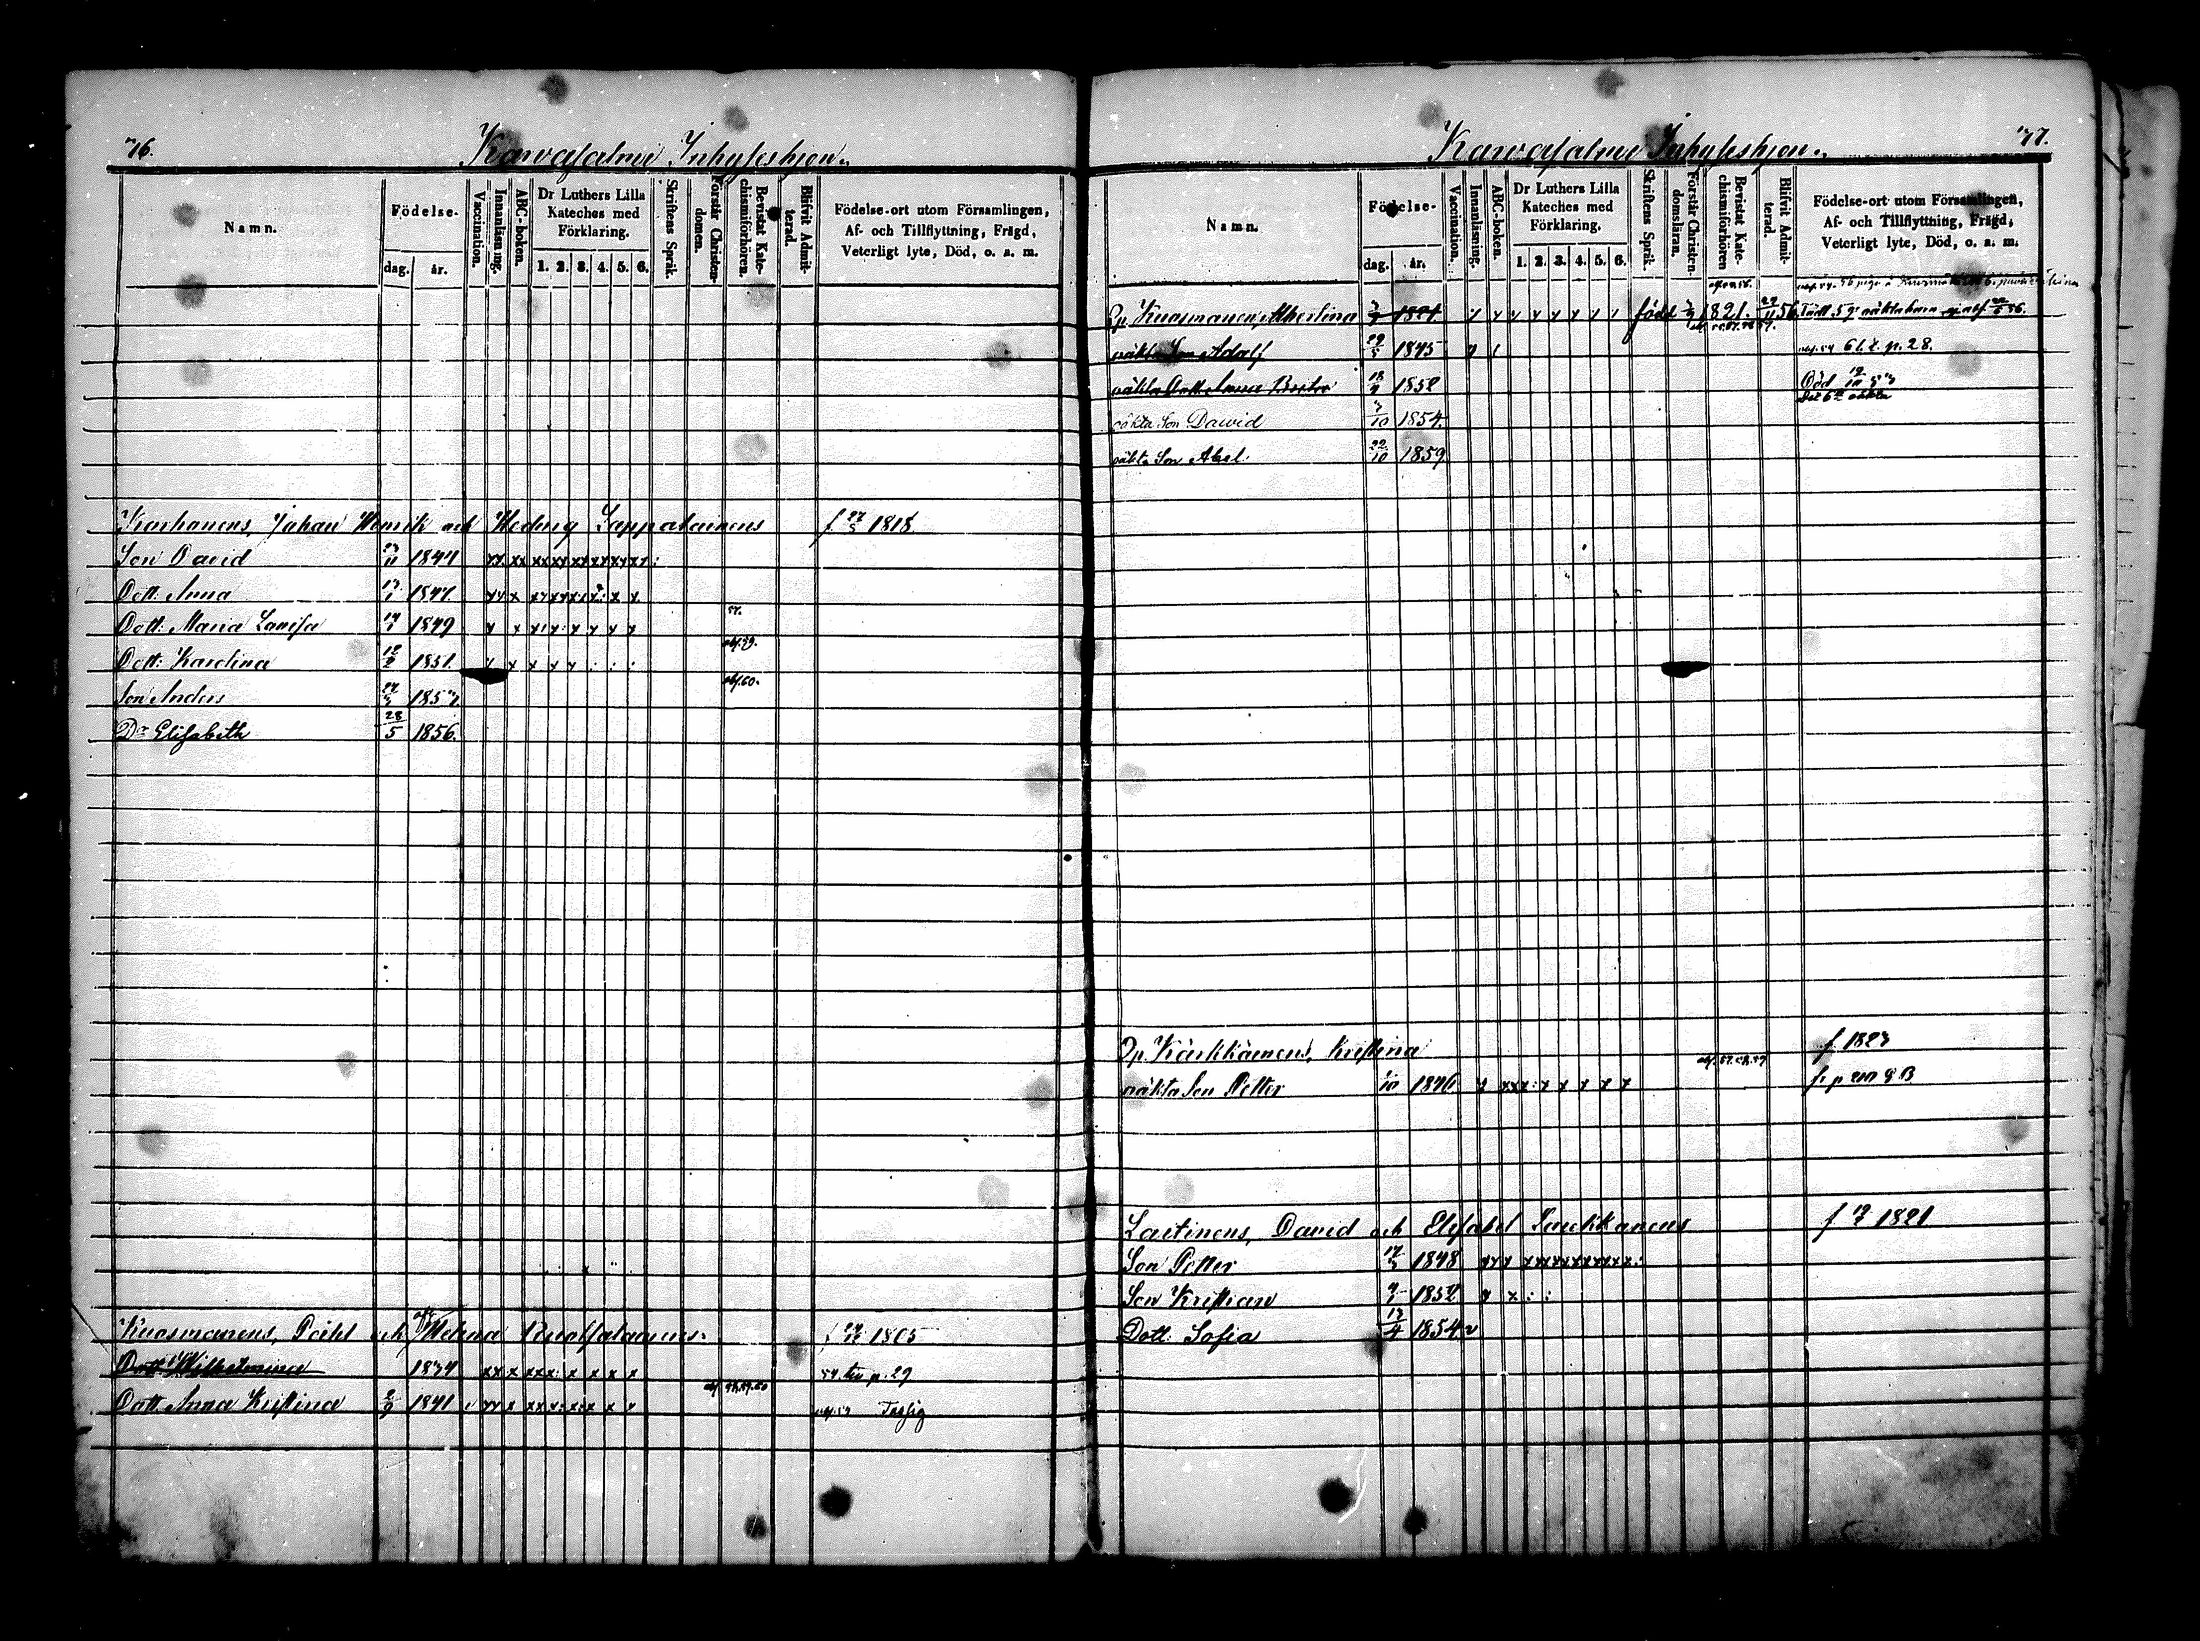 76.
Karvasalmi Inhyseshjon.
Namn.
Födelse-
dag. år.
Vaccination.
Innanläsning.
ABC-boken.
Dr Luthers Lilla
Kateches med
Förklaring.
1. 2. 3. 4. 5. 6.
Skriftens Språk.
Förstår Christen-
domen.
Bevistat Kate-
chismiförhören.
Blifvit Admit-
terad.
Födelse-ort utom Församlingen,
Af- och Tillflyttning, Frägd,
Veterligt lyte, Död, o. s. m.
Karhonens, Johan Henrik och Hedvig Lappalainens f. 27/5 1818
Son David 1844
Dott. Anna 1847.
Dott. Maria Lovisa 1849
57.
Dott. Karolina 1851.
abs. 59.
Son Anders 1853.
abs. 60.
Dr Elisabeth 28/5 1856.
Kuosmanens, Påhl och Helena Ruotsalainens 1805
Dott. Wilhelmina 1834
54. p. 29
Dott. Anna Kristina 1841
77.
Karvasalmi Inhyseshjon.
Namn.
Födelse-
dag. år.
Vaccination.
Innanläsning.
ABC-boken.
Dr Luthers Lilla
Kateches med
Förklaring.
1. 2. 3. 4. 5. 6.
Skriftens Språk.
Förstår Christen-
domsläran.
Bevistat Kate-
chismiförhören
Blifvit Admit-
terad.
Födelse-ort utom Församlingen,
Af- och Tillflyttning, Frägd,
Veterligt lyte, Död, o. s. m.
Kuosmanen, Albertina 1821 född 1821.
oäkta Son Adolf 29/5 1845 p. 28.
oäkta Dott. Anna 18/9 1852 Död
oäkta Son David 3/10 1854.
oäkta Son Abel. 22/10 1859
Kärkkäinen, Kristina f. 1823
oäkta Son Petter 1846
Laitinens, David och Elisabet Parkkanens 1821
Son Petter 1848
Son Kristian 1852
Dott. Sofia 13/4 1854